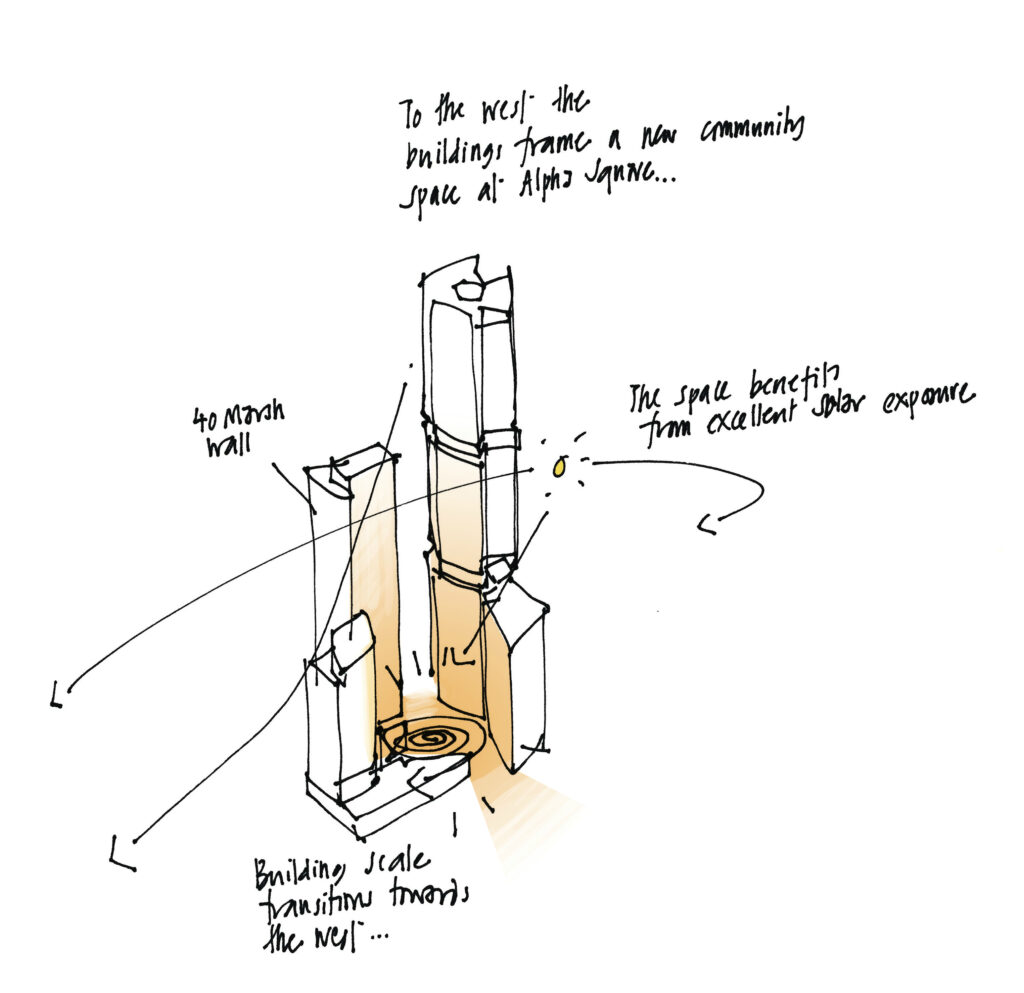 To the west the
buildings frame a new community
space at Alpha Square...
The space benefits
from excellent solar exposure
40 Marsh
Wall
Building scale
transitions towards
the west...